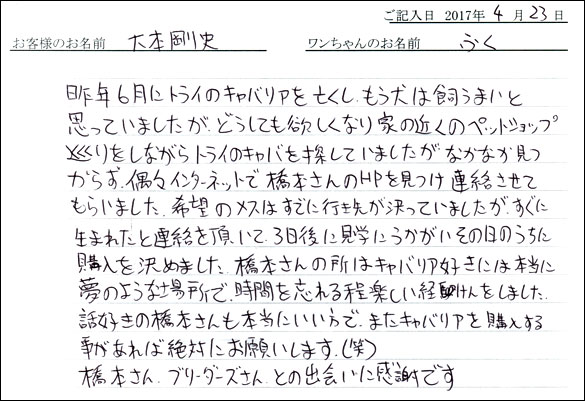 ご記入日 2017年 4 月 23 日
お客様のお名前 大本剛史 ワンちゃんのお名前 ふく
昨年6月にトライのキャバリアを亡くし、もう犬は飼うまいと
思っていましたが、どうしても欲しくなり家の近くのペットショップ
巡りをしながらトライのキャバを探していましたがなかなか見つ
からず、偶々インターネットで橋本さんのHPを見つけ連絡させて
もらいました。希望のメスはすでに行き先が決っていましたが、すぐに
生まれたと連絡を頂いて、3日後に見学にうかがいその日のうちに
購入を決めました。橋本さんの所はキャバリア好きには本当に
夢のような場所で、時間を忘れる程楽しい経験をしました。
話好きの橋本さんも本当にいい方で、またキャバリアを購入する
事があれば絶対にお願いします。(笑)
橋本さん、ブリーダーズさん、との出会いに感謝です